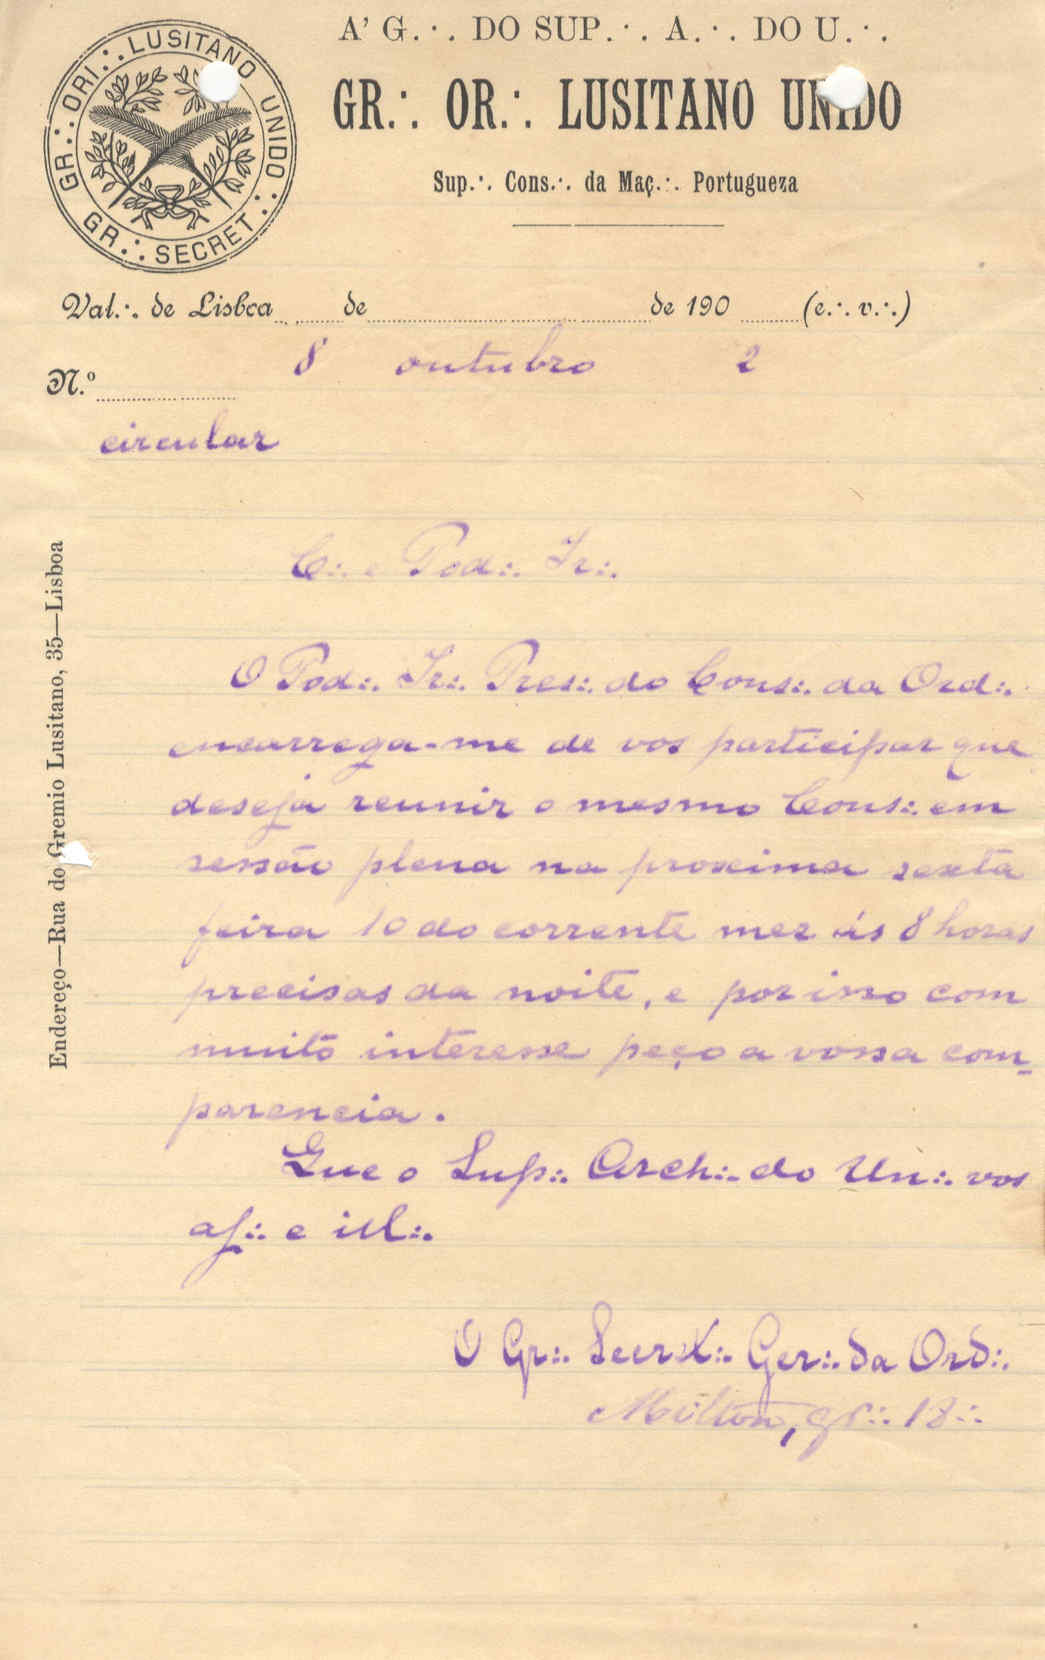 A' G.·. DO SUP.·. A.·. DO U.·.
GR.·. OR.·. LUSITANO UNIDO
Sup.·. Cons.·. da Maç.·. Portugueza
GR.·. ORI.·. LUSITANO UNIDO.·.
GR.·. SECRET.·.
Val.·. de Lisboa 8 de outubro de 1902 (e.·. v.·.)
N.º
circular
Endereço—Rua do Gremio Lusitano, 35—Lisboa
C.·. e Pod.·. Ir.·.
O Pod.·. Ir.·. Pres.·. do Cons.·. da Ord.·.
encarrega-me de vos participar que
deseja reunir o mesmo Cons.·. em
sessão plena na proxima sexta
feira 10 do corrente mez ás 8 horas
precisas da noite, e por isso com
muito interesse peço a vossa com-
parencia.
Que o Sup.·. Arch.·. do Un.·. vos
aj.·. e ill.·.
O Gr.·. Secret.·. Ger.·. da Ord.·.
Milton, gr.·. 18.·.